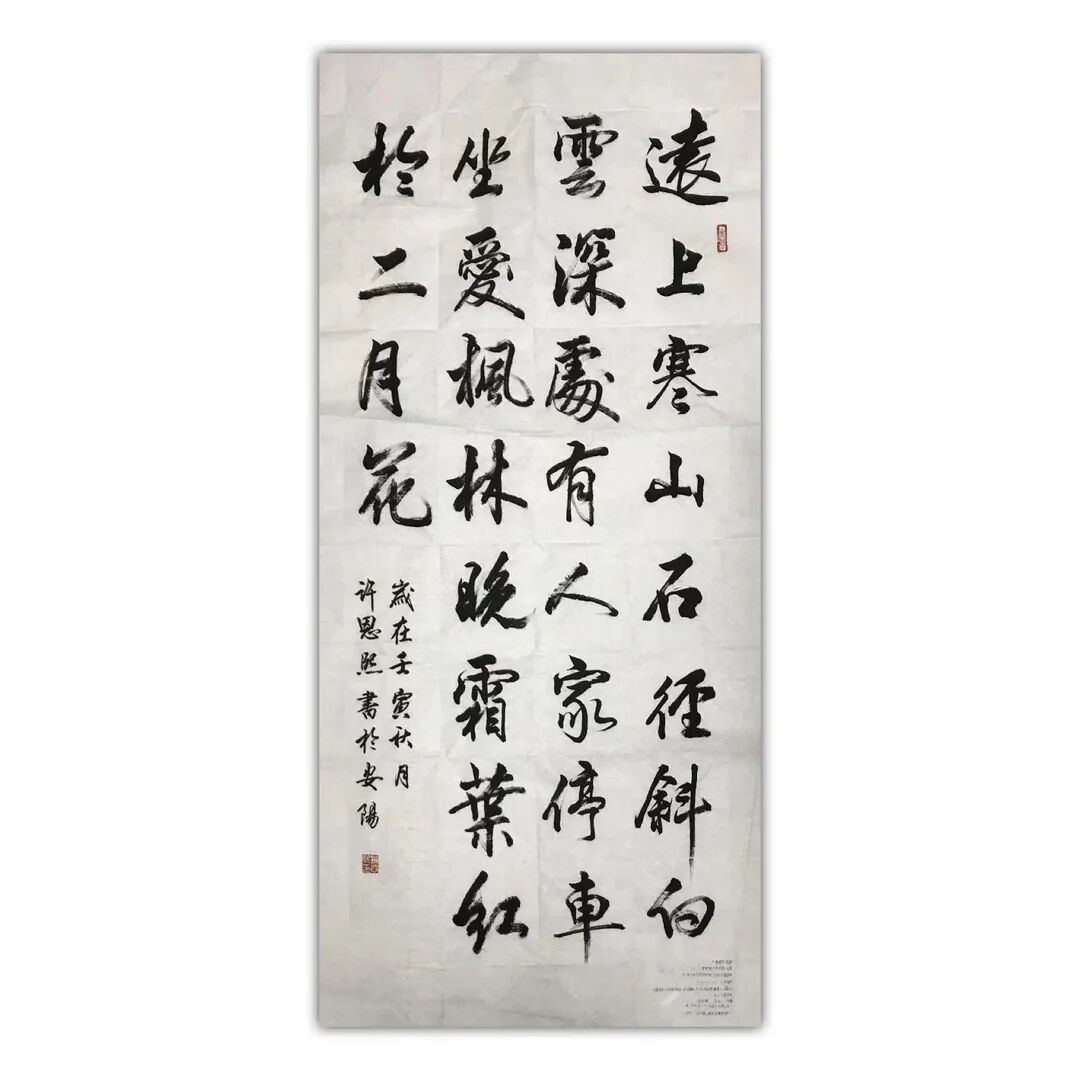 遠上寒山石徑斜白
雲深處有人家停車
坐愛楓林晚霜葉紅
於二月花
歲在壬寅秋月
許恩熙書於安陽